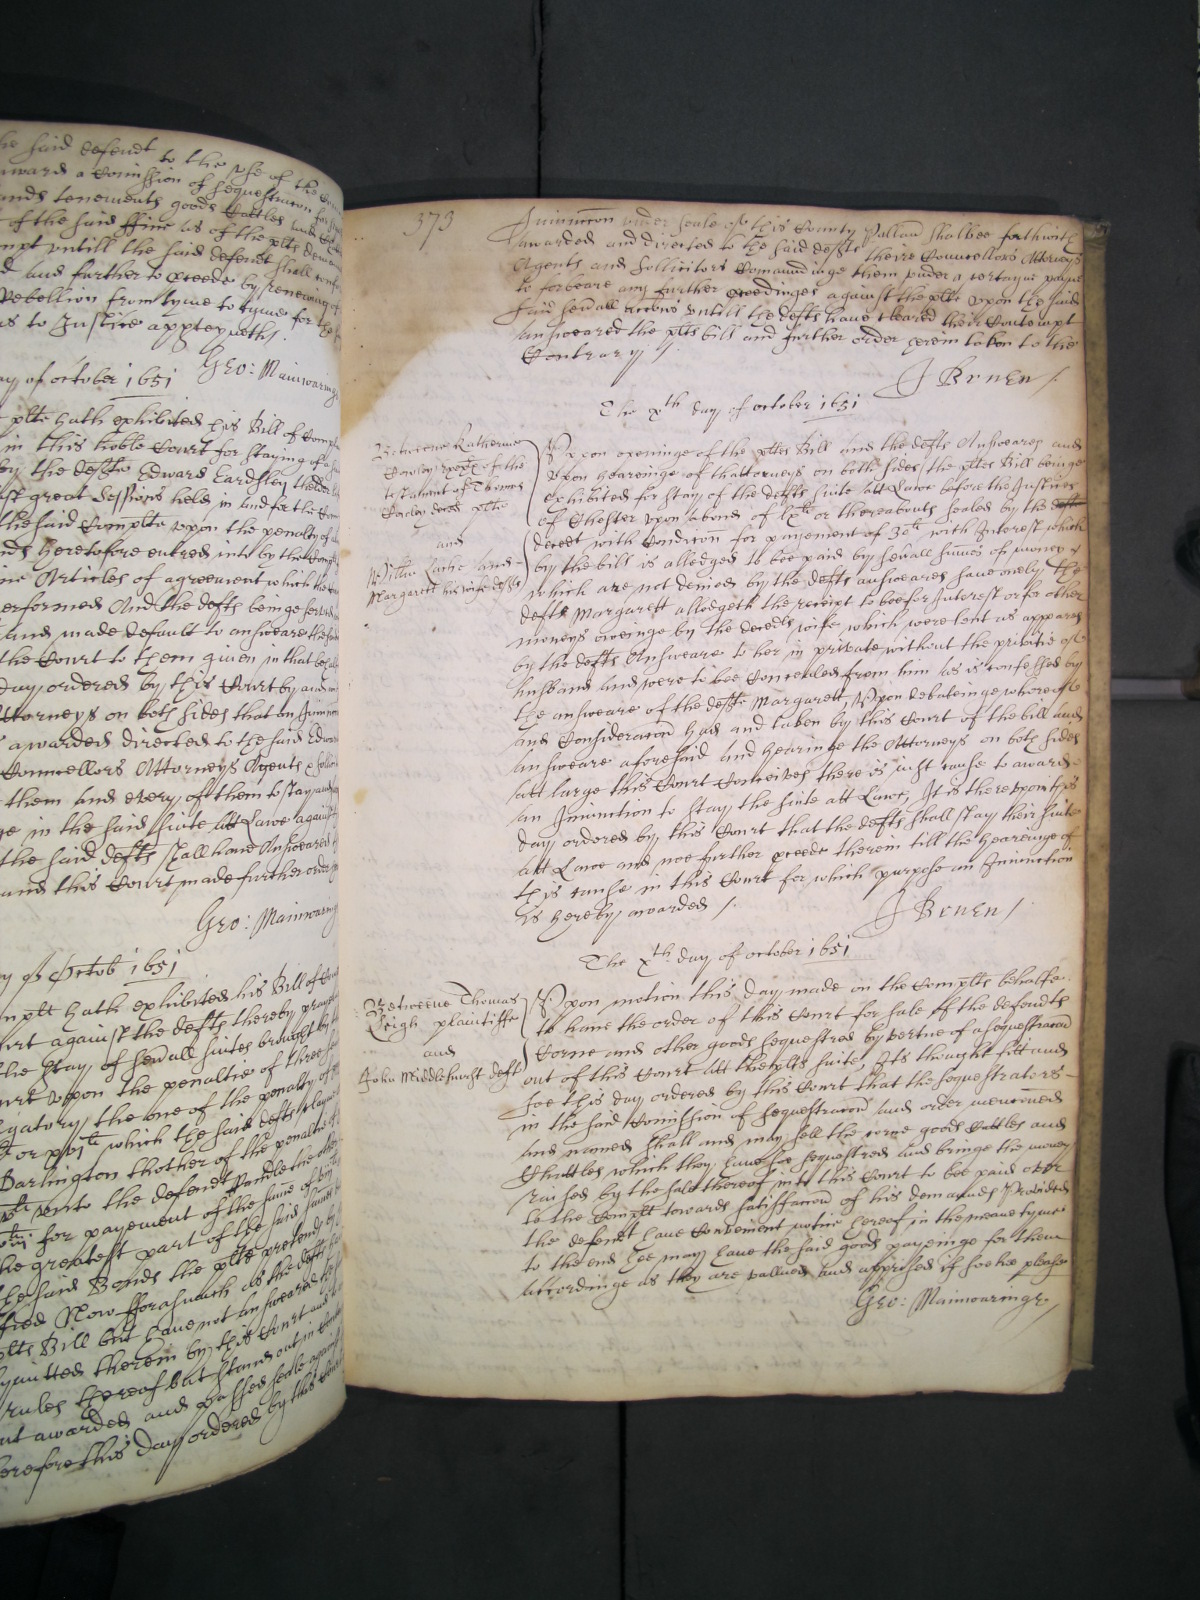 he said defendt to the use of the
award a Comission of sequestracon for
lands tenements goods Cattles and
of the said ffine as of the plts
mpt untill the said defendt shall
d and further to proceede by renewing
Rebellion from tyme to tyme for
as to Justice apperteyneth /
Geo: Mainwaringe
ay of october 1651
plte hath exhibited his Bill of Comp
in this hoble Court for staying of a
by the defte Edward Eardsley
ast great Sessions held in and for the
the said Complte upon the penalty of
nds heretofore entred into by the
Articles of agreement which the
erformed And the defts beinge served
and made default to answeare the
the Court to them given in that behalf
day ordered by this Court by and
Attorneys on both sides that an
awarded directed to the said Edw
Councellors Attorneys Agents & Sollic
them and every of them to stay
ge in the said suite att Lawe against
the said defts shall have Answeared
and this Court made further order
Geo: Mainwaring
y of Octob 1651
mplt hath exhibited his Bill of
rt against the defts thereby
the stay of seuall suites brought
urt upon the penaltie of three
igatory the one of the penalty of
or xvjli which the said defts
Barlington thother of the penaltie
unto the defendt
for payement of the sume of
the greatest part of the said
the said Bonds the plte pretends
fied Now fforasmuch as the defts
plts Bill but have not answeared
quitted therein by this Court
rules thereof but stands out in
nt awarded and passed seale against
erefore this day ordered by this
373
Iniunccon under seale of this County Pallan shalbee forthwith
awarded and directed to the said defts theire Councellors Attorneys
Agents and Sollicitors Comaundinge them under a certayne payne
to forbeare any further proceedinges against the plte upon the said
said seuall accons untill the defts have cleared their Contempt
answeared the plts bill and further order herein taken to the
Contrary /
J Bruen /
The xth day of october 1651
Betweene Katherine
Cowley exex of the
testament of Thomas
Cowley decd plte
and
Willm
Margarett his wife defts
Upon openinge of the pltes Bill and the defts Answeares and
upon hearinge of thattorneys on both sides the pltes Bill beinge
exhibited for stay of the defts suite att Lawe before the Justices
of Chester upon a bond of lxli or thereabouts sealed by the deft
decedt with Condicon for payement of 30li with Interest which
by the bill is alledged to bee paid by seuall sumes of money &
which are not denied by the defts answeares save onely the
defte Margarett alledgeth the receipt to bee for Interest or for other
moneys oweinge by the decedts wife which were lent as appeares
by the defts Answeare to her in private without the privitie of
husband and were to bee Concealed from him as is confessed by
the answeare of the defte Margarett, Upon debateinge whereof
and Consideracon had and taken by this Court of the bill and
answeare aforesaid and hearinge the Attorneys on both sides
att large this Court Conceives there is just cause to award
an Iniunction to stay the suite att Lawe, It is thereupon this
day ordered by this Court that the defts shall stay their suite
att Lawe and noe further proceede therein till the hearinge of
this cause in this Court for which purpose an Iniunction
is hereby awarded /
J Bruen /
The xth day of october 1651
Betweene Thomas
Leigh plaintiffe
and
John Middlehurst deft
Upon motion this day made on the Complts behalfe
to have the order of this Court for sale of the defendts
Corne and other goods sequestred by vertue of a sequestracon
out of this Court att the plts suite, It is thought fitt and
soe this day ordered by this Court that the sequestrators
in the said Comission of sequestracon and order mencioned
and named shall and may sell the corne goods Cattles and
Chattles which they have soe sequestred and bringe the money
raised by the sale thereof into this Court to bee paid over
to the Complt towards satisfaccon of his demands Provided
the defendt have Convenient notice hereof in the meane tyme
to the end hee may have the said goods payeinge for them
accordinge as they are vallued and apprised if hee please
Geo: Mainwaringe